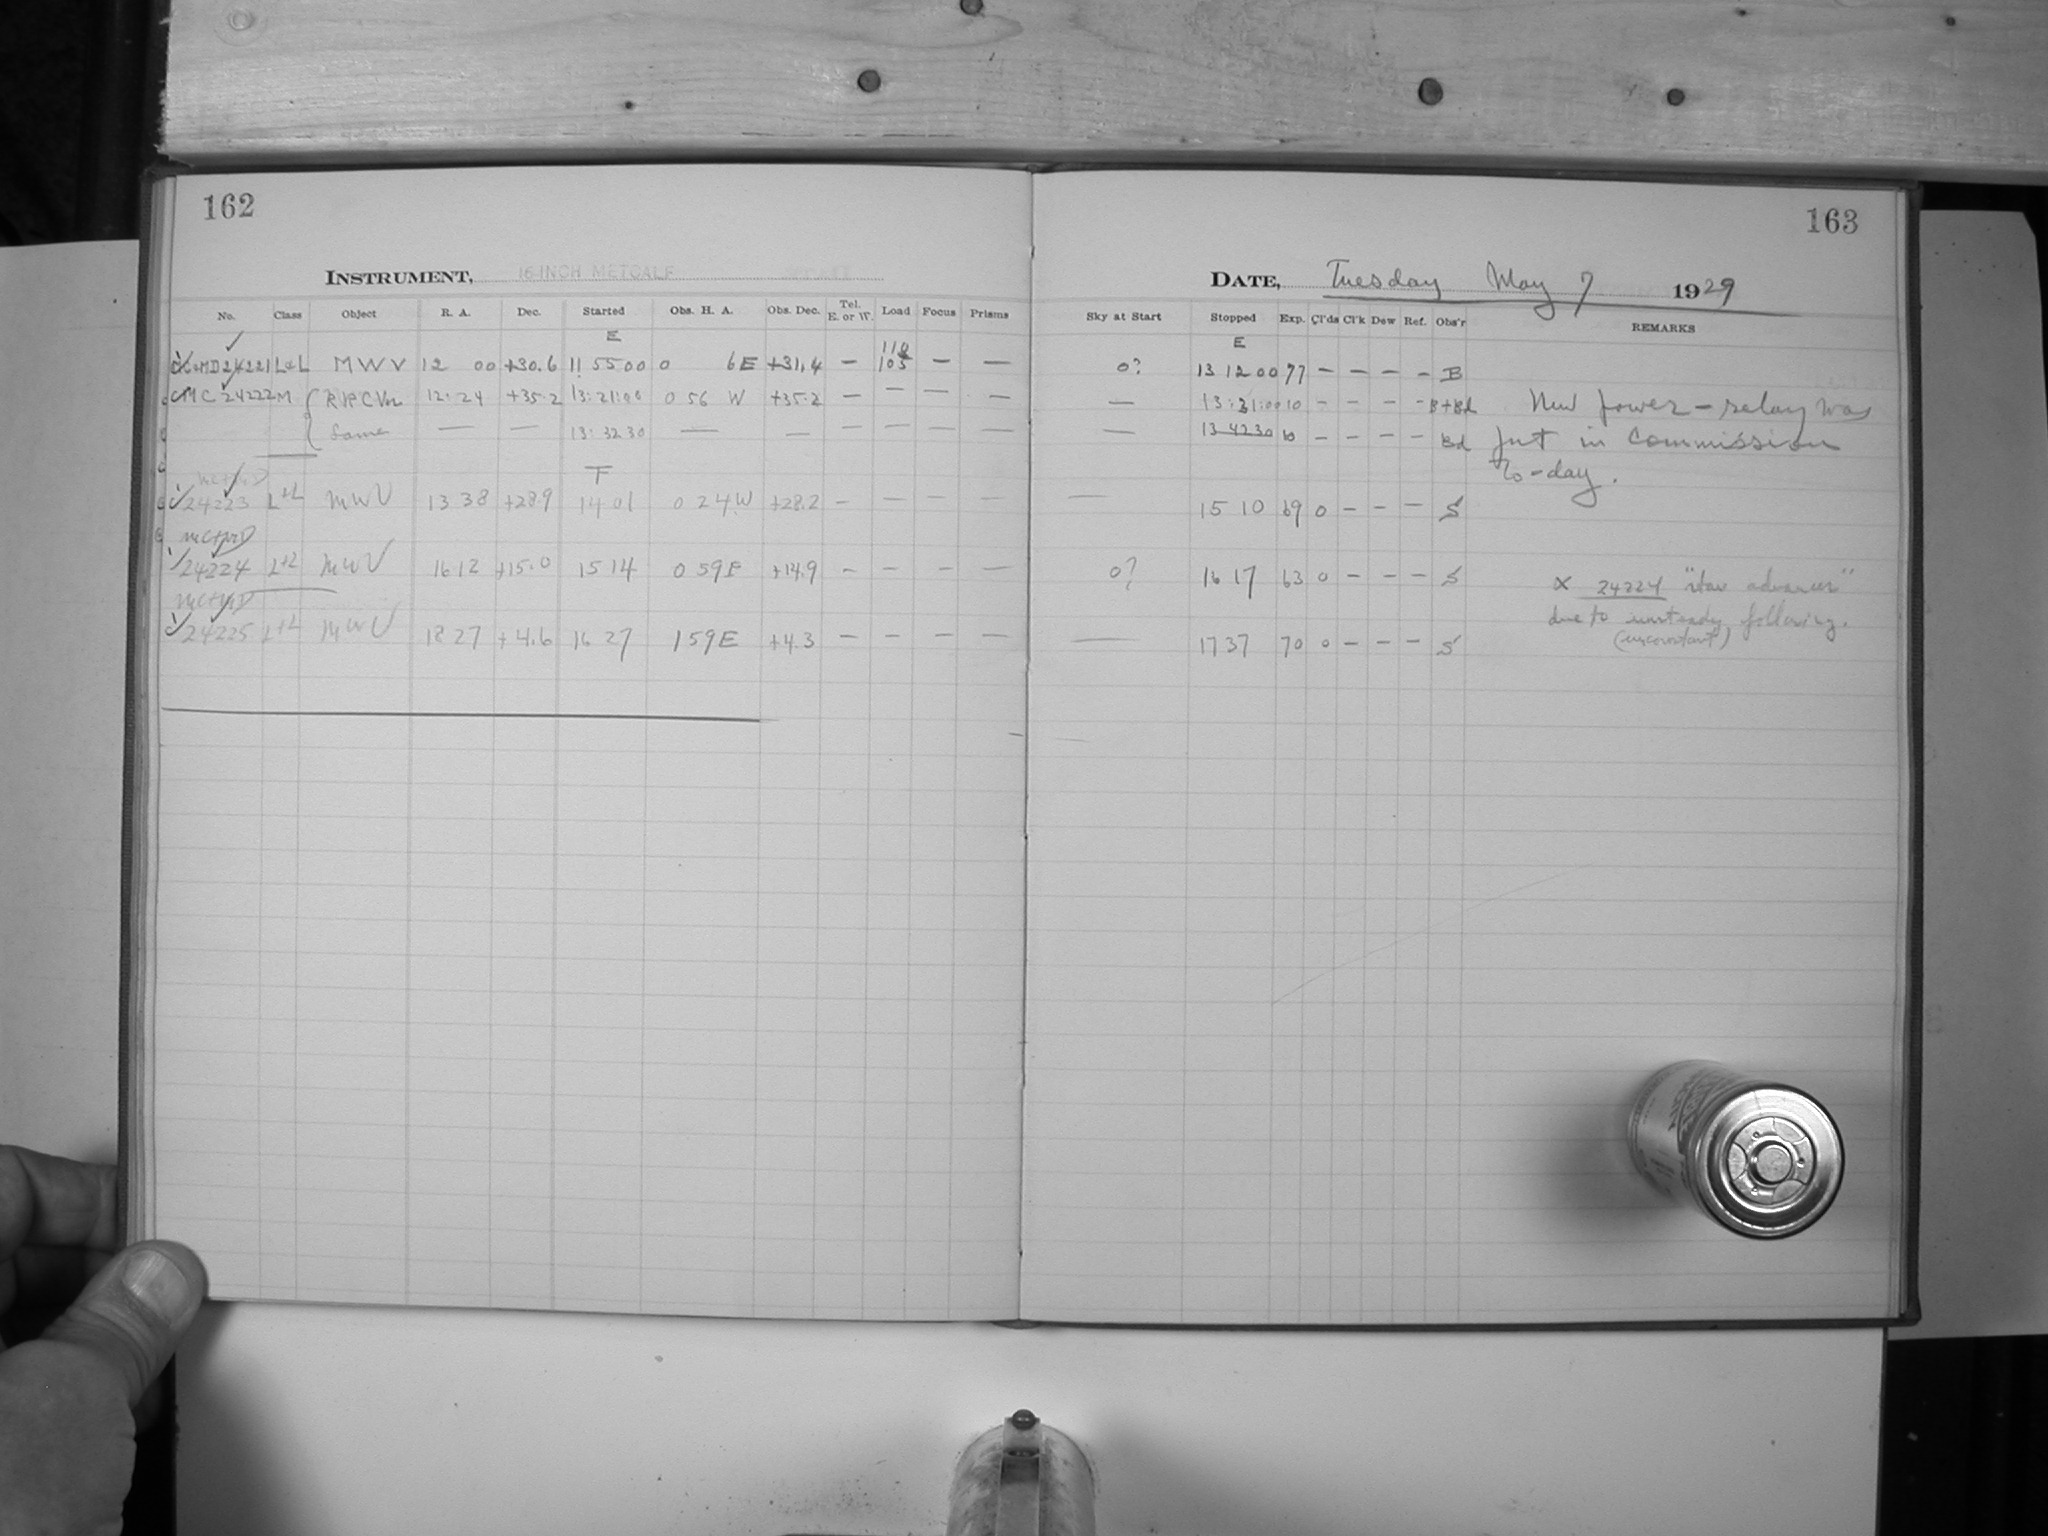 162
163
INSTRUMENT, 16-INCH METCALF
DATE, Tuesday May 7 1929
No. Class Object R. A. Dec. Started Obs. H. A. Obs. Dec. Tel. E. or W. Load Focus Prisms
Sky at Start Stopped Exp. Cl'ds Cl'k Dew Ref. Obs'r REMARKS
E
E
MC+MD24221 L+L M W V 12 00 +30.6 11 55 00 0 6 E +31.4 — 110 105 — —
0? 13 12 00 77 — — — — B
MC 24222 M 12.24 +35.2 13:21:00 0 56 W +35.2 — — —
— 13:31:00 10 — — — — B+Bd New power-relay was
Same — — 13:32 30 — — — — — —
— 13 42 30 10 — — — — Bd put in commission
to-day.
T
MC+MD
24223 L+L MWV 13 38 +28.9 14 01 0 24 W +28.2 — — — —
— 15 10 69 0 — — — S
MC+MD
24224 L+L MWV 16 12 +15.0 15 14 0 59 E +14.9 — — — —
0? 16 17 63 0 — — — S
24224 "star advances"
due to unsteady following.
(inconstant)
MC+MD
24225 L+L MWV 18 27 +4.6 16 27 1 59 E +4.3 — — — —
— 17 37 70 0 — — — S